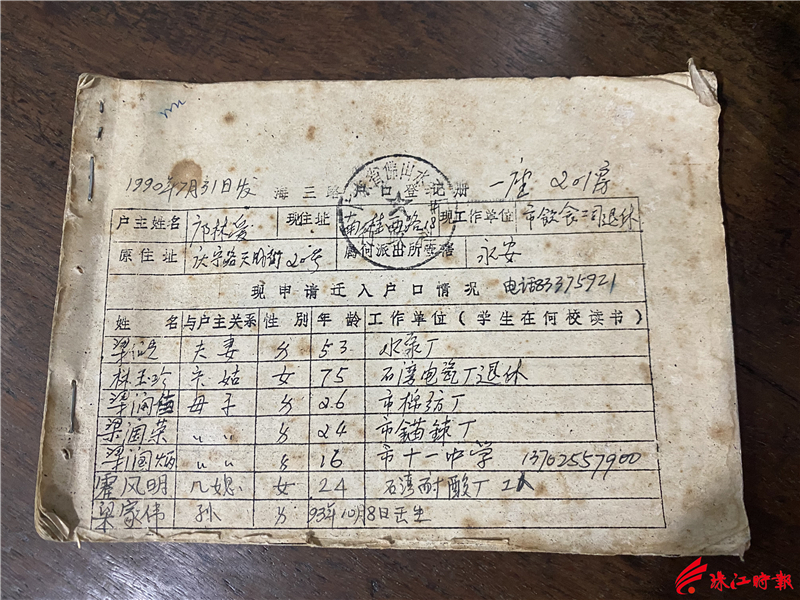 1990年7月31日发 海三路户口登记册 一座 201房
省佛山水
户主姓名 邝林爱 现住址 南桂西路 现工作单位 市饮食公司退休
原住址 庆宁路天明街20号 属何派出所管辖 永安
现申请迁入户口情况 电话83375921
姓名 与户主关系 性别 年龄 工作单位(学生在何校读书)
梁 夫妻 男 53 水泵厂
林玉珍 家姑 女 75 石湾电瓷厂退休
梁润 母子 男 26 市棉纺厂
梁国荣 〃 〃 男 24 市锚链厂
梁润炳 〃 〃 男 16 市十一中学 13702557900
霍凤明 儿媳 女 24 石湾耐酸厂 工人
梁家伟 孙 男 93年10月8日出生
珠江时报